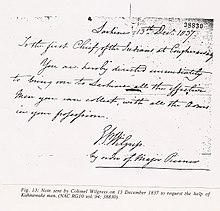 38830
Lachine 13th Decr. 1837.
To the first Chief of the Indians at Caughnawaga
You are hereby directed immediately
to bring me to Lachine all the effective
Men you can collect, with all the Arms
in your possession.
Wilgress.
by order of Major Penner
Fig. 13: Note sent by Colonel Wilgress on 13 December 1837 to request the help of
Kahnawake men. (NAC RG10 vol. 94: 38830).